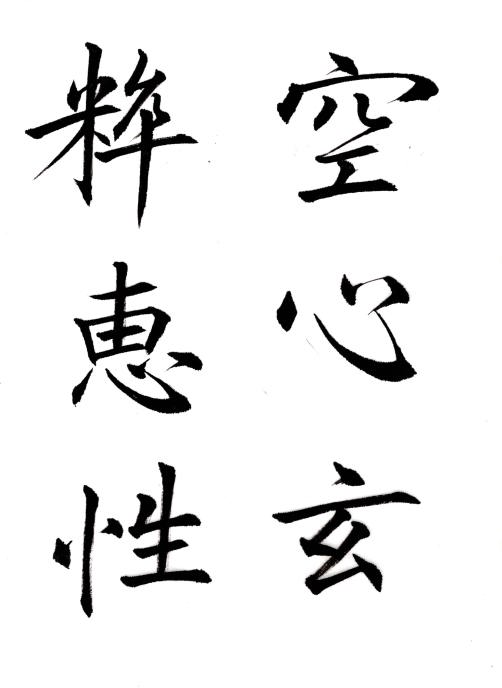 空心玄
粋恵性